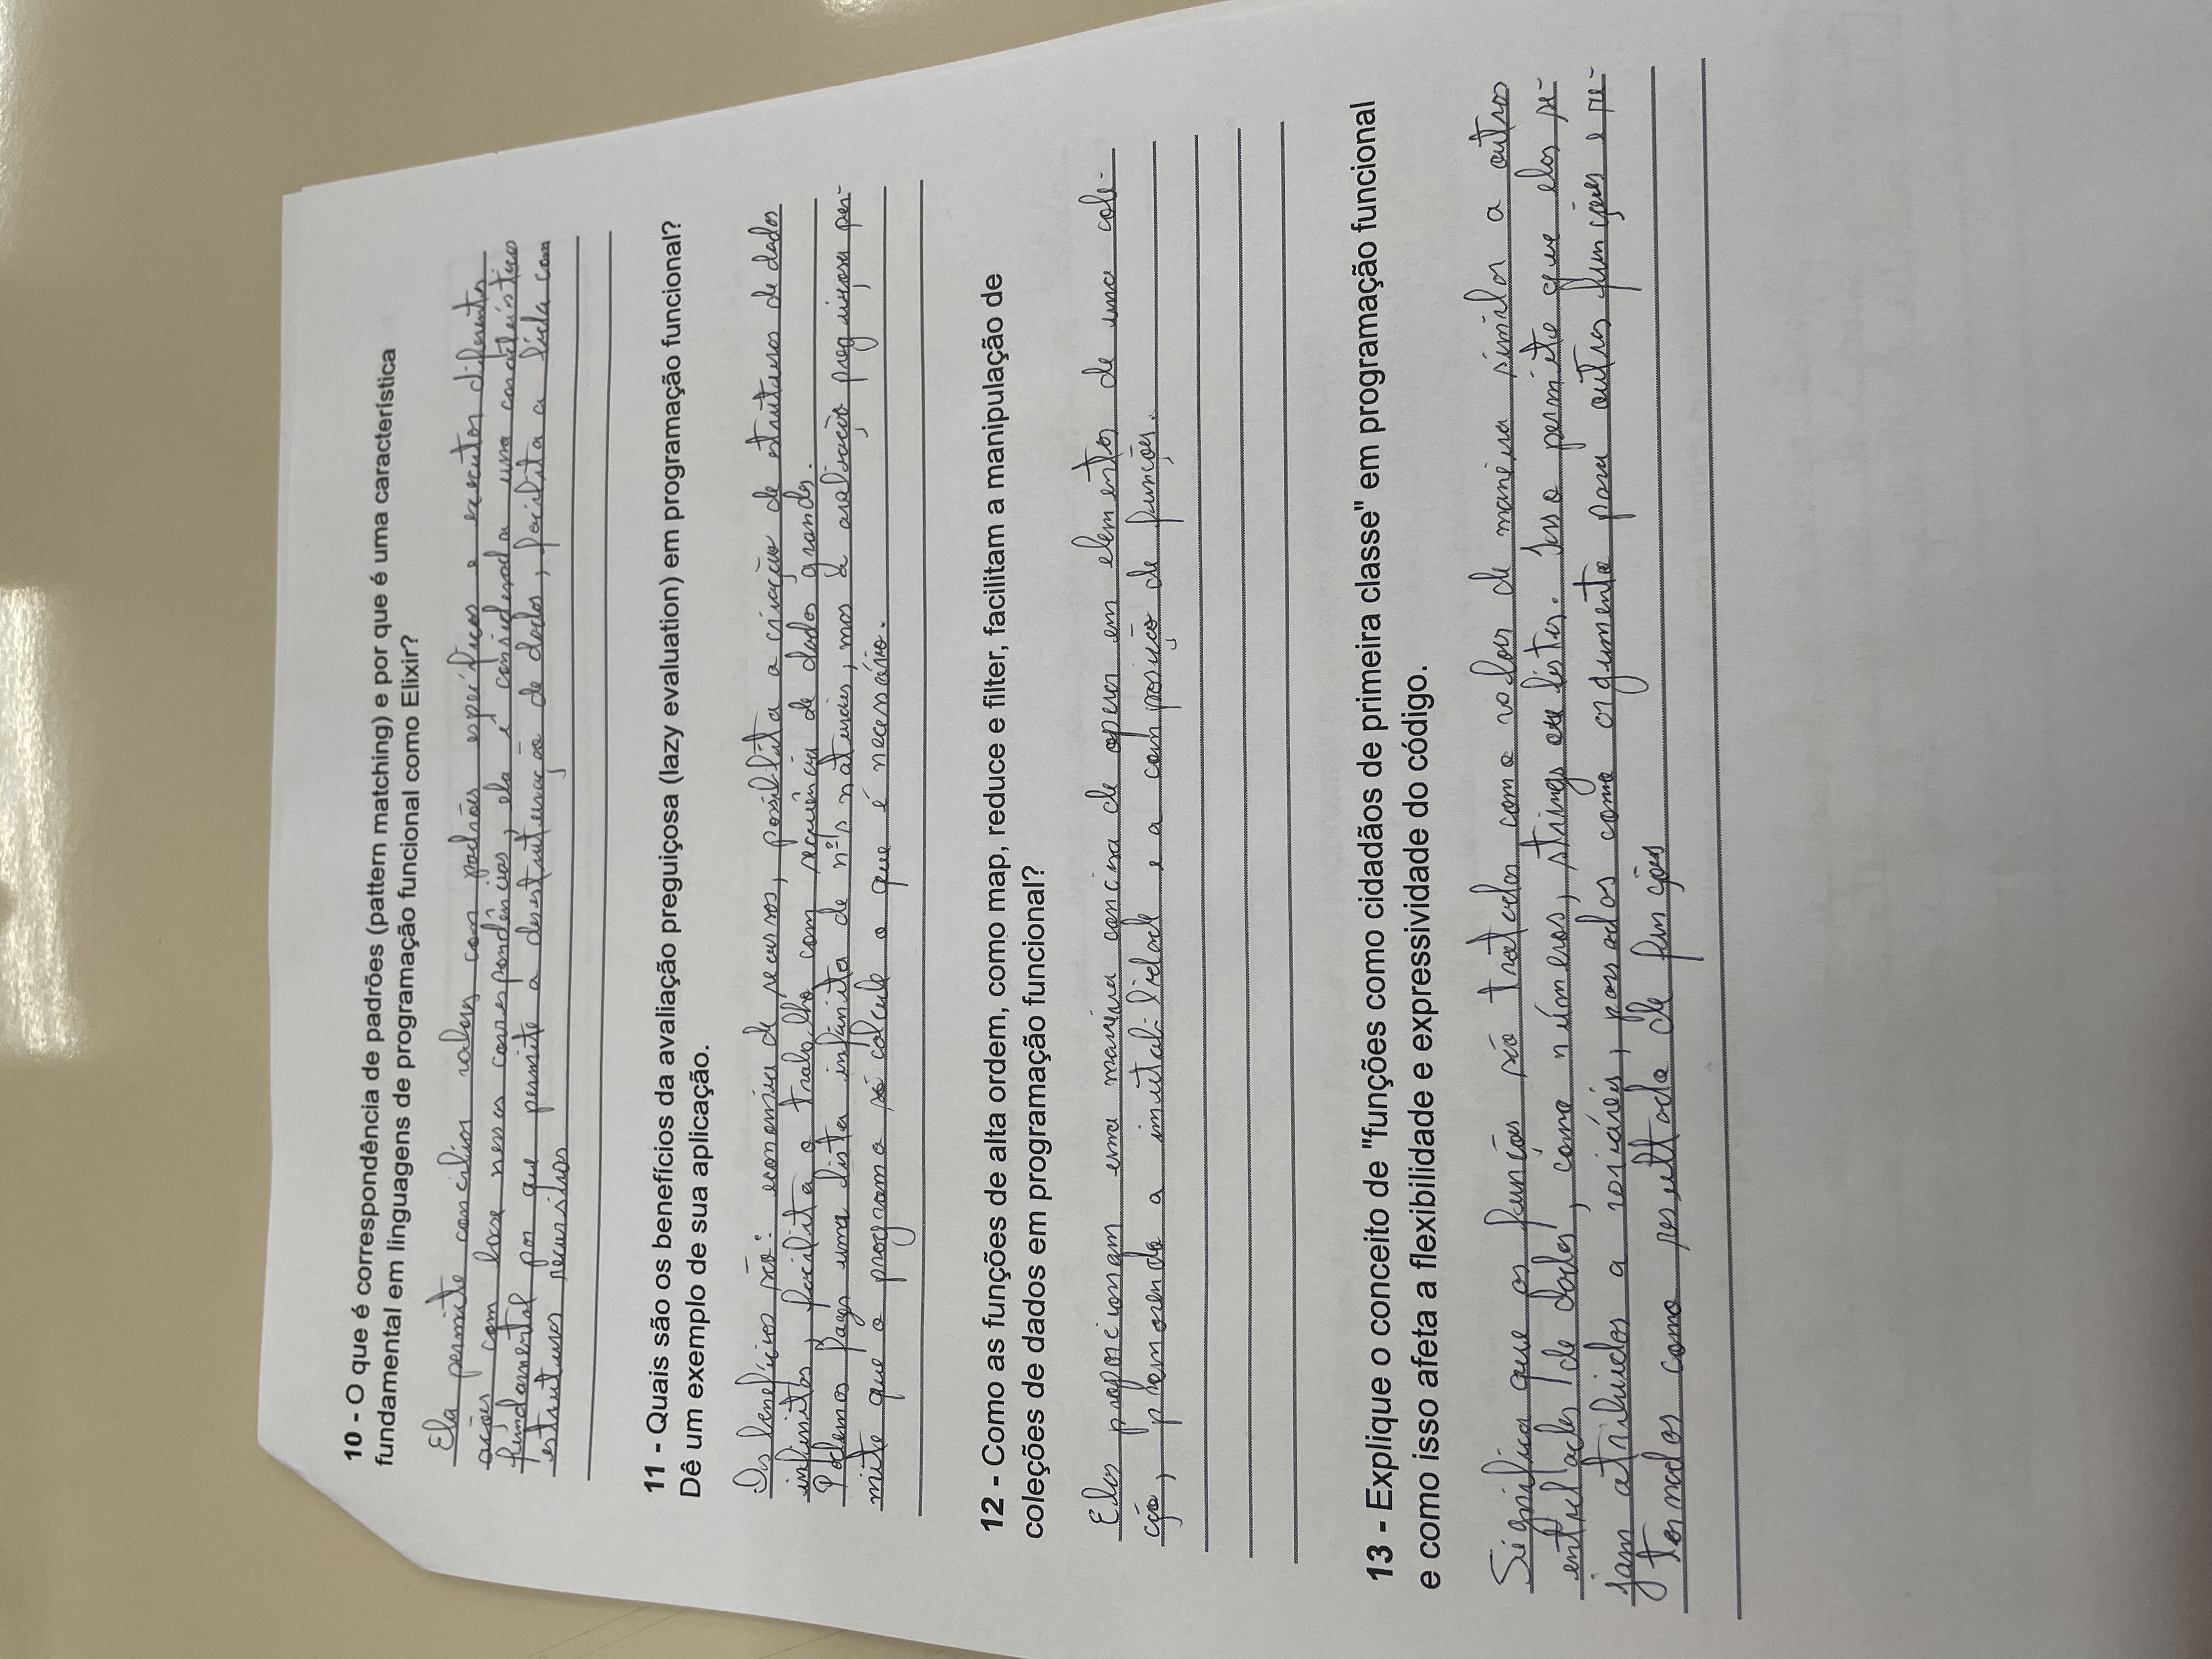 10 - O que é correspondência de padrões (pattern matching) e por que é uma característica
fundamental em linguagens de programação funcional como Elixir?
Ela permite conciliar valores com padrões específicos e executar diferentes
ações com base nessas correspondências, ela é considerada uma característica
fundamental por que permite a desestruturação de dados, facilita a lida com
estruturas recursivas
11 - Quais são os benefícios da avaliação preguiçosa (lazy evaluation) em programação funcional?
Dê um exemplo de sua aplicação.
Os benefícios são: economia de recursos, possibilita a criação de estruturas de dados
infinitos, facilita o trabalho com sequência de dados grandes.
Podemos fazer uma lista infinita de nºs naturais, mas a avaliação preguiçosa per-
mite que o programa só calcule o que é necessário.
12 - Como as funções de alta ordem, como map, reduce e filter, facilitam a manipulação de
coleções de dados em programação funcional?
Elas proporcionam uma maneira concisa de operar em elementos de uma cole-
ção, promovendo a imutabilidade e a composição de funções.
13 - Explique o conceito de "funções como cidadãos de primeira classe" em programação funcional
e como isso afeta a flexibilidade e expressividade do código.
Significa que as funções são tratadas como valores de maneira similar a outros
entidades de dados, como números, strings ou listas. Isso permite que elas se-
jam atribuídos a variáveis, passados como argumento para outras funções e re-
tornados como resultado de funções